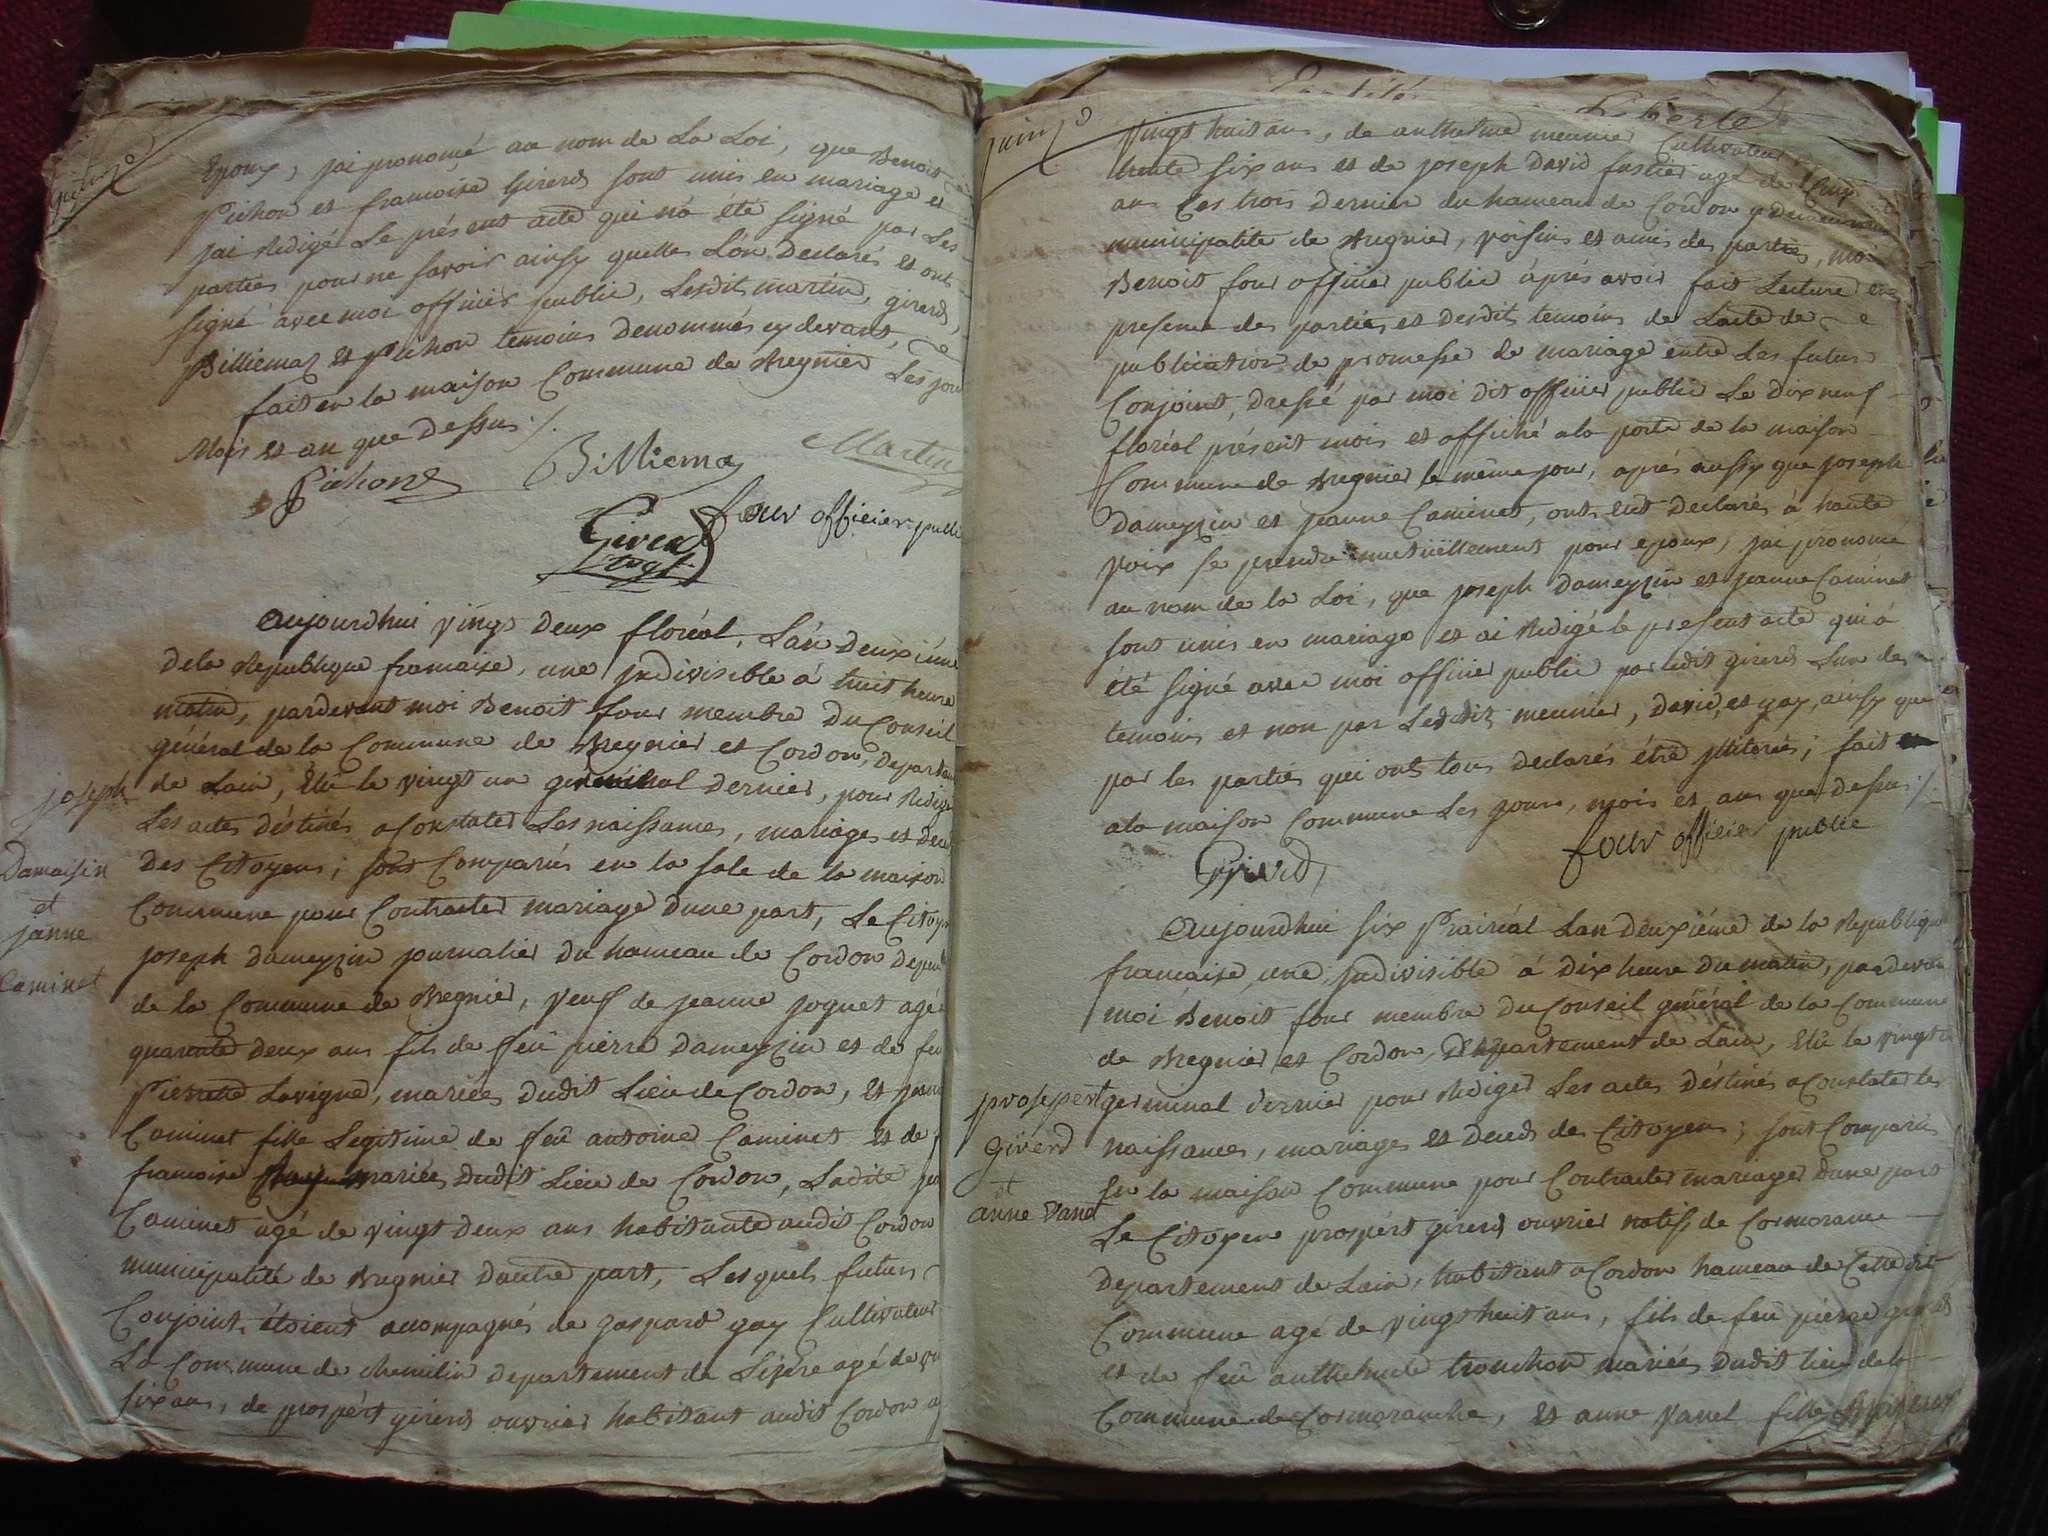 quinze
Epoux, jai prononcé au nom de La Loi, que Benoit
Pichon et francoise Girerd sont unis en mariage et
jai Redigé Le présent acte qui na eté signé par Les
parties pour ne savoir ainsy quelles Lon Declarés et ont
signé avec moi officier public, Lesdits martin, girerd,
Billiemaz et Pichon temoins denommés cy devant,
fait en la maison Commune de Bregnier Les jour
Mois et an que Dessus ./.
Pichond
Billiemaz
Martin
Girerd
four officier publi
aujourdhui vingt deux floréal, Lan Deuxiéme
dela Republique francaise, une jndivisible á huit heure
matin, pardevant moi Benoit four membre Du Conseil
général de la Commune de Bregnier et Cordon, Departem
de Lain, Elû le vingt un germinal dernier, pour Redige
Les actes déstinés a Constater Les naissances, mariages et dece
Des Citoyens; sont Comparûs en la sale de la maison
Commune pour Contracter mariage dune part, Le Citoy
joseph dameyzin journalier du hameau de Cordon depen
de la Commune de Bregnier, veuf de jeanne joquet agé
quarante deux ans fils de feû pierre Dameyzin et de feu
Pierrette Lavigne, mariés dudit Lieu de Cordon, et jeann
Caminet fille Legitime de feû antoine Caminet et de f
francoise mariés dudit Lieu de Cordon, Ladite jea
Caminet agé de vingt deux ans habitante audit Cordon
municipalité de Bregnier dautre part, Lesquels futurs
Conjoint étoient acompagnés de gaspard gay Cultivateur
La Commune de chemilin departement de Lizere agé de vi
six ans, de prospért girerd ouvrier habitant audit Cordon a
joseph
Damaisin
et
janne
Caminet
quinze
Egalité
Liberté
vingt huit ans, de anthelme meunier Cultivateur
trente six ans et de joseph david fustier agé de Cinq
ans Les trois dernier du hameau de Cordon y demeurant
municipalité de Bregnier, voisins et amis des parties, moi
Benoit four officier public áprés avoir fait Lécture en
presence des parties et desdits temoins de Lacte de
publication de promesse de mariage entre Les futurs
Conjoint, dressé par moi dit officier public Le dix neuf
floréal présent mois et affiché ala porte de la maison
Commune de Bregnier le même jour, aprés aussy que joseph
Dameyzin et jeanne Caminet, ont eut declarés á haute
voix se prendre mutuëllement pour epoux, jai prononcé
au nom de la Loi, que joseph Dameyzin et jeanne Caminet
sont unis en mariage et ai Redigé le present acte qui á
été signé avec moi officier public par ledit girerd Lun des
temoins et non par Lesdits meunier, david, et gay, ainsy que
par les parties qui ont tous declarés être jlliterés; fait
ala maison Commune Les jours, mois et ans que dessus ./.
Girerd
four officier public
aujourdhui six Prairéal Lan deuxiéme de la Republique
francaise, une, jndivisible á dix heure du matin, pardevan
moi Benoit four membre du Conseil général de la Commune
de Bregnier et Cordon, departement de Lain, Elû le vingt
germinal dernier pour Rediger Les actes déstinés a Constater les
naissances, mariages et deces des Citoyens; sont Comparûs
En la maison Commune pour Contracter mariage dune part
Le Citoyen prospért girerd ouvrier natif de Cormoranche
departement de Lain, habitant a Cordon hameau de Cette dit
Commune agé de vingt huit ans, fils de feû pierre girerd
et de feû anthelmete tronchon mariés dudit lieu dela
Commune de Cormoranche, et anne vanel fille
prosepert
Giverd
et
anne vanel